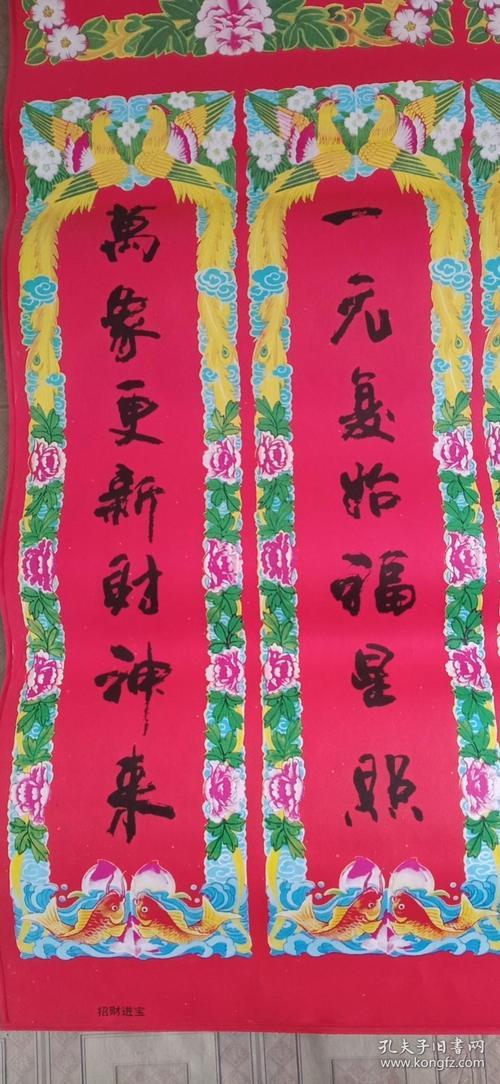 一元复始福星照
萬象更新财神来
招财进宝
孔夫子旧书网
www.kongfz.com